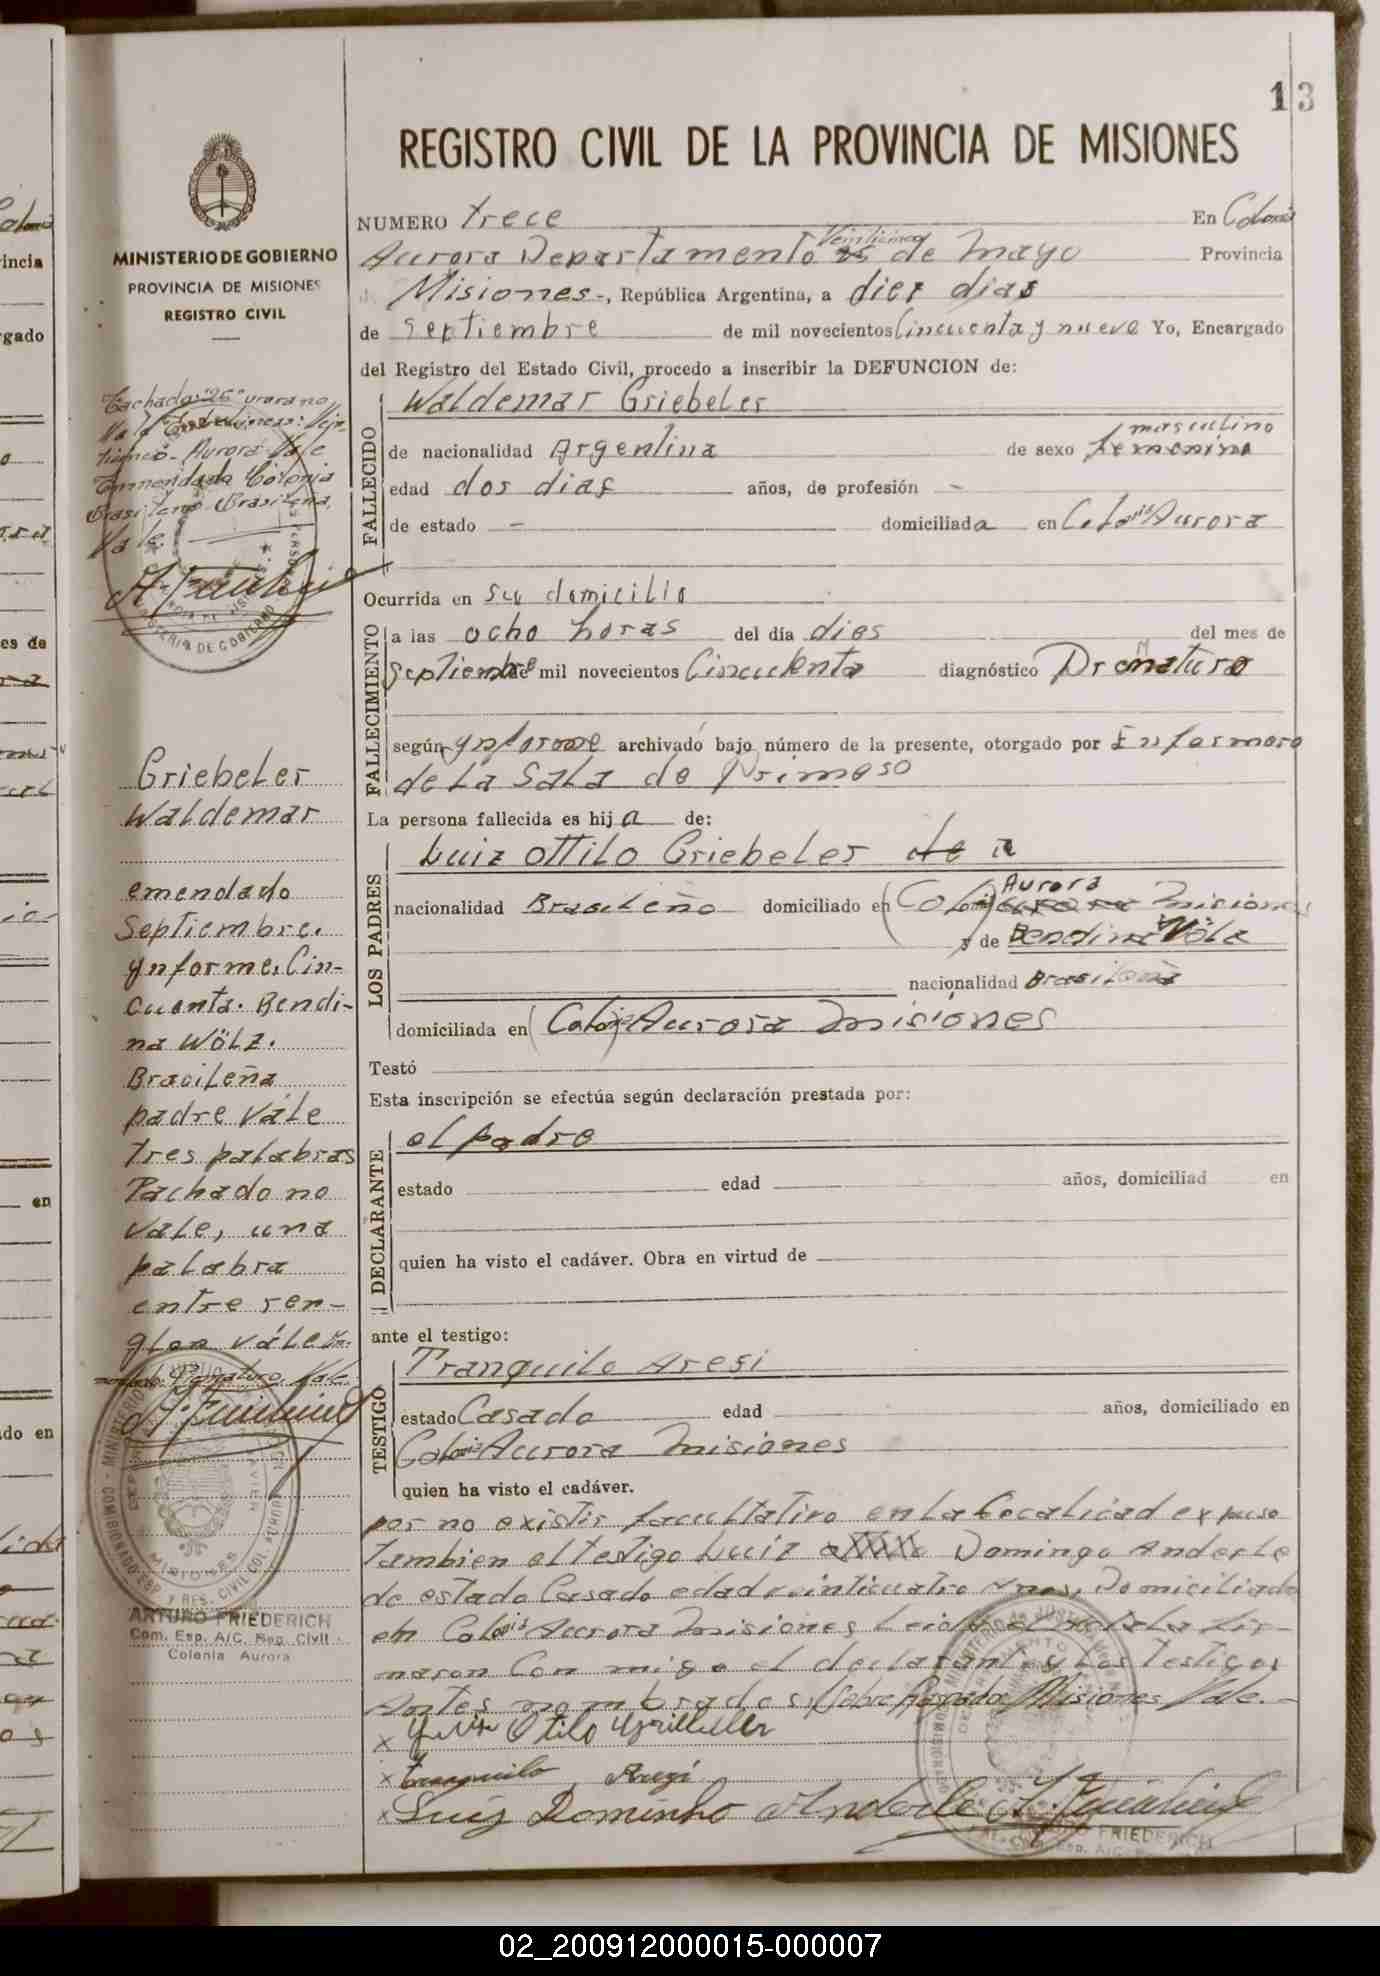 13
REGISTRO CIVIL DE LA PROVINCIA DE MISIONES
MINISTERIO DE GOBIERNO
PROVINCIA DE MISIONES
REGISTRO CIVIL
NUMERO trece En Colonia
Aurora Departamento 25 Veinticinco de Mayo Provincia
Misiones -, República Argentina, a diez dias
de Septiembre de mil novecientos Cincuenta y nueve Yo, Encargado
del Registro del Estado Civil, procedo a inscribir la DEFUNCION de:
FALLECIDO
Waldemar Griebeler
masculino
de nacionalidad Argentina de sexo femenino
edad dos dias años, de profesión -
de estado - domiciliada en Colonia Aurora
Ocurrida en su domicilio
FALLECIMIENTO
a las ocho horas del día dies del mes de
Septiembre de mil novecientos Cincuenta diagnóstico
según ynforme archivado bajo número de la presente, otorgado por Enfermero
de La Sala de Primeso
La persona fallecida es hij a de:
LOS PADRES
Luiz Ottilo Griebeler de
Aurora
nacionalidad Brasileño domiciliado en (Colonia) Misiones
y de Bendina Wölz
nacionalidad Brasileña
domiciliada en (Colonia) Aurora Misiones
Testó
Esta inscripción se efectúa según declaración prestada por:
DECLARANTE
el padre
estado edad años, domiciliad en
quien ha visto el cadáver. Obra en virtud de
ante el testigo:
TESTIGO
Tranquilo Aresi
estado Casado edad años, domiciliado en
Colonia Aurora Misiones
quien ha visto el cadáver.
por no existir facultativo en La Localidad expuso
tambien el testigo Luiz Domingo Anderle
de estado Casado edad veinticuatro Anos, Domiciliado
en Colonia Aurora Misiones Leida el Acta La fir-
maron Con migo el declarante y Los testigos
Antes nombrados, Sobre Misiones Vale.-
x Otilo
x Tranquilo Aresi
x Luiz Dominho Anderle
Tachado "25"
Vale
Aurora Vale
Emmendado Colonia
Brasileño Brasileña,
Vale.
Griebeler
Waldemar
emendado
Septiembre.
ynforme, Cin-
cuenta. Bendi-
na Wölz.
Brasileña
padre Vale
tres palabras
Tachado no
vale, una
palabra
entre ren-
glon vále
Vale.
ARTURO FRIEDERICH
Com. Esp. A/C. Reg. Civil
Colonia Aurora
FRIEDERICH
02_200912000015-000007